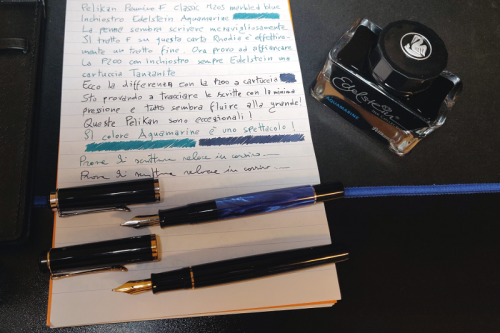 Pelikan Pennino F classic M205 marbled blue
Inchiostro Edelstein Aquamarine
La penna sembra scrivere meravigliosamente
Il tratto F su questa carta Rhodia è effettiva-
mente un tratto fine. Ora provo ad affiancare
la P200 con inchiostro sempre Edelstein ma
cartuccia Tanzanite
Ecco la differenza con la P200 a cartuccia
Sto provando a tracciare le scritte con la minima
pressione e tutto sembra fluire alla grande!
Queste Pelikan sono eccezionali!
Il colore Aquamarine è uno spettacolo!
Prova di scrittura veloce in corsivo
Prova di scrittura veloce in corsivo
Edelstein
AQUAMARINE